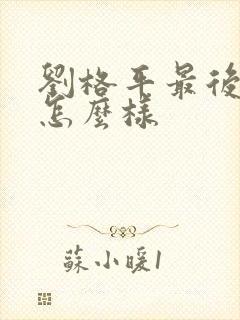 劉格平最後
怎麼樣
蘇小暖1